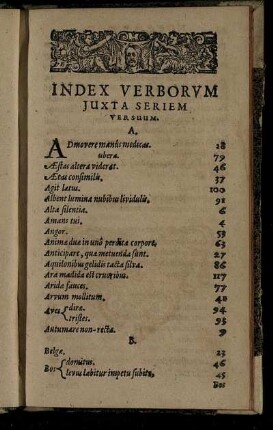 INDEX VERBORVM
JUXTA SERIEM
VERSUUM.
A.
ADmovere manus medicas. 18
ubera. 79
Æstas altera viderat. 46
Ætas consimilis. 37
Agit latus. 100
Albent lumina nubibus lividulis. 91
Alta silentia. 6
Amans tui. 4
Angor. 53
Animæ duæ in uno corpore. 63
Anticipare, quæ metuenda sunt. 27
Aquilonibus gelidis tacta silva. 86
Ara madida est cruoribus. 117
Arida fauces. 77
Arvum mollitum. 40
Aves diræ. 94
tristes. 93
Autumare non-recta. 9
B.
Belga. 23
Bos domitur. 46
levis labitur impetu subito. 45
Bos